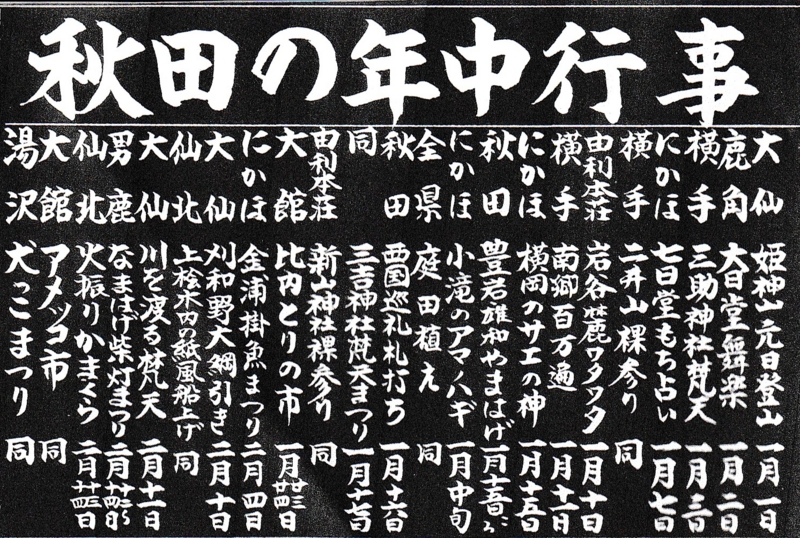 秋田の年中行事
大仙 姫神山元日登山 一月一日
鹿角 大日堂舞楽 一月二日
横手 三助神社梵天 一月三日
にかほ 七日堂もち占い 一月七日
横手 二井山裸参り 同
由利本荘 岩谷麓ワタワタ 一月十日
横手 南郷百万遍 一月十一日
にかほ 横岡のサエの神 一月十五日
秋田 豊岩雄和やまはげ 一月十五日ころ
にかほ 小滝のアマノハギ 一月中旬
全県 庭田植え 同
秋田 西国巡礼札打ち 一月十六日
同 三吉神社梵天まつり 一月十七日
由利本荘 新山神社裸参り 同
大館 比内とりの市 一月廿三廿四日
にかほ 金浦掛魚まつり 二月四日
大仙 刈和野大綱引き 二月十日
仙北 上桧木内の紙風船上げ 同
大仙 川を渡る梵天 二月十一日
男鹿 なまはげ柴灯まつり
仙北 火振りかまくら
大館 アメッコ市 同
湯沢 犬っこまつり 同